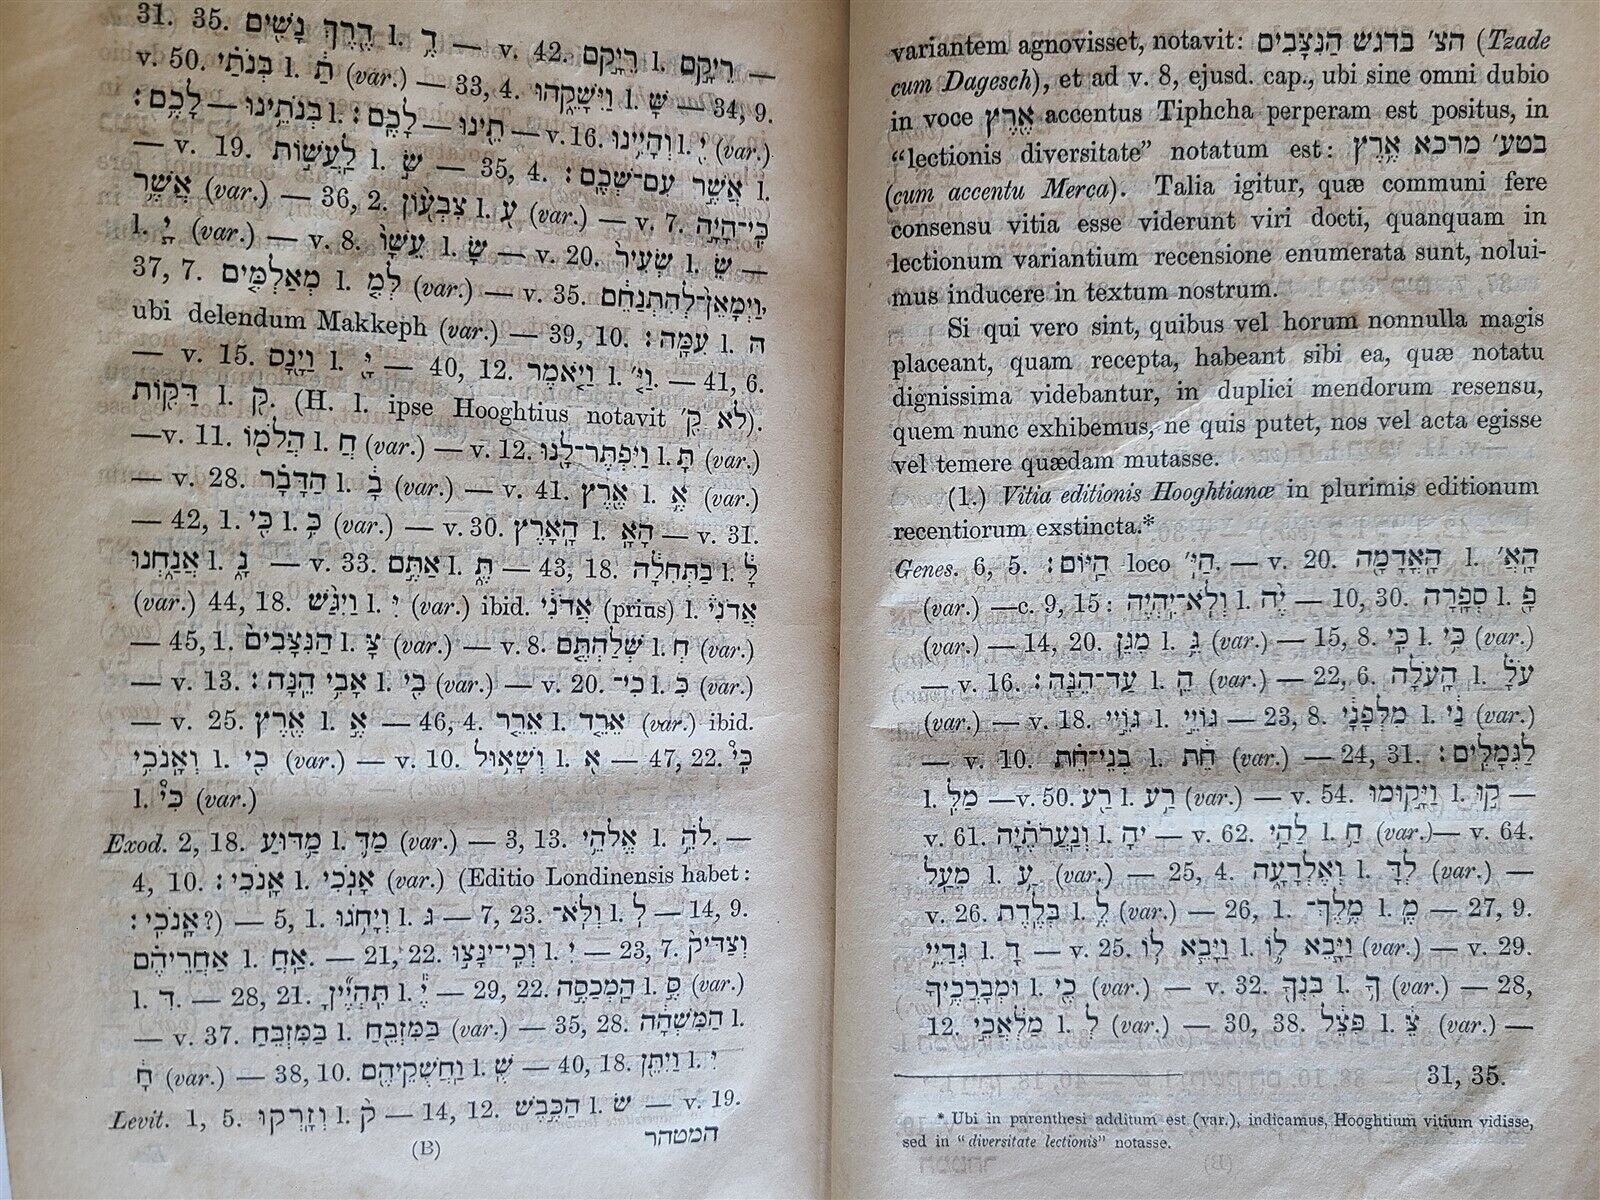 variantem agnovisset, notavit: הצ׳ בדגש הַנִּצָּבִים (Tzade
cum Dagesch), et ad v. 8, ejusd. cap., ubi sine omni dubio
in voce אֶרֶץ accentus Tiphcha perperam est positus, in
“lectionis diversitate” notatum est: בטע׳ מרכא אֶרֶץ
(cum accentu Merca). Talia igitur, quæ communi fere
consensu vitia esse viderunt viri docti, quanquam in
lectionum variantium recensione enumerata sunt, nolui-
mus inducere in textum nostrum.
Si qui vero sint, quibus vel horum nonnulla magis
placeant, quam recepta, habeant sibi ea, quæ notatu
dignissima videbantur, in duplici mendorum resensu,
quem nunc exhibemus, ne quis putet, nos vel acta egisse
vel temere quædam mutasse.
(1.) Vitia editionis Hooghtianæ in plurimis editionum
recentiorum exstincta.*
Genes. 6, 5. הַיּוֹם׃ loco הַיּ׳. — v. 20. הָאֲדָמָה l. הָאֲ׳
(var.) — c. 9, 15: וְלֹא־יִהְיֶה l. יֶה — 10, 30. סְפָרָה l. פָ
(var.) — 14, 20. מִגֵּן l. גֵּ (var.) — 15, 8. כִּי l. כִּי (var.)
— v. 16. עַד־הֵנָּה׃ l. הֵ (var.) — 22, 6. הָעֹלָה l. עֹלָ
(var.) — v. 18. גּוֹיֵי l. גּוֹיֵי — 23, 8. מִלְּפָנַי l. נַי (var.)
— v. 10. בְּנֵי־חֵת l. חֵת (var.) — 24, 31. לַגְּמַלִּים׃
l. מַלִּ — v. 50. רַע l. רַע (var.) — v. 54. וַיָּקוּמוּ l. קוּ —
v. 61. וְנַעֲרֹתֶיהָ l. יהָ — v. 62. לַחַי l. חַ (var.) — v. 64.
מֵעַל l. עַ (var.) — 25, 4. וְאֶלְדָּעָה l. לְדָּ (var.) —
v. 26. בְּלֶדֶת l. לֶ (var.) — 26, 1. מֶלֶךְ־ l. מֶ — 27, 9.
גְּדָיֵי l. דָ — v. 25. וַיָּבֵא לוֹ l. וַיָּבֵא לוֹ (var.) — v. 29.
וּמְבָרְכֶיךָ l. כֶי (var.) — v. 32. בִּנְךָ l. ךָ (var.) — 28,
12. מַלְאֲכֵי l. לְ (var.) — 30, 38. פִּצֵּל l. צֵּ (var.) —
31, 35.
* Ubi in parenthesi additum est (var.), indicamus, Hooghtium vitium vidisse,
sed in “diversitate lectionis” notasse.
31. 35. דֶרֶךְ נָשִׁים l. דֶ — v. 42. רֵיקָם l. רֵיקָם —
v. 50. בְּנֹתַי l. תַ (var.) — 33, 4. וַיִּשָּׁקֵהוּ l. שָּׁ — 34, 9.
לָכֶם׃ — בְּנֹתֵינוּ l. לָכֶם׃ — תֵינוּ — v. 16. וְהָיִינוּ l. יִ (var.)
— v. 19. לַעֲשׂוֹת l. שׂ — 35, 4. אֲשֶׁר עִם־שְׁכֶם׃ l.
אֲשֶׁר (var.) — 36, 2. צִבְעוֹן l. עֽ (var.) — v. 7. כִּי־הָיָה
l. יָ (var.) — v. 8. עֵשָׂו l. שָׂ — v. 20. שֵׂעִיר l. שֵׂ —
37, 7. מְאַלְּמִים l. לְּמִ (var.) — v. 35. וַיְמָאֵן־לְהִתְנַחֵם
ubi delendum Makkeph (var.) — 39, 10. עִמָּהּ׃ l. הּ
— v. 15. וַיָּנָס l. יָּ — 40, 12. וַיֹּאמֶר l. וַיּ׳. — 41, 6.
דַּקּוֹת l. ק. (H. l. ipse Hooghtius notavit לא ק׳).
— v. 11. חֲלֹמוֹ l. חֲ (var.) — v. 12. וַיִּפְתָּר־לָנוּ l. תָּ (var.)
— v. 28. הַדָּבָר l. בָ (var.) — v. 41. אֶרֶץ l. אֶ (var.)
— 42, 1. כִּי l. כִּ (var.) — v. 30. הָאָרֶץ l. הָאָ — v. 31.
אֲנָחְנוּ l. נָ — v. 33. אַתֶּם l. תֶּ — 43, 18. בַּתְּחִלָּה l. לָּ
(var.) 44, 18. וַיִּגַּשׁ l. יִּ (var.) ibid. אֲדֹנִי (prius) l. אֲדֹנִי
— 45, 1. הַנִּצָּבִים l. צָּ (var.) — v. 8. שְׁלַחְתֶּם l. חְ (var.)
— v. 13. אָבִי הֵנָּה׃ l. בִי (var.) — v. 20. כִּי־ l. כִּ (var.)
— v. 25. אֶרֶץ l. אֶ — 46, 4. אֵרֵד l. אֵרֵד (var.) ibid.
וְאָנֹכִי l. כִי (var.) — v. 10. וְשָׁאוּל l. א — 47, 22. כִּי
l. כִּי (var.)
Exod. 2, 18. מַדּוּעַ l. מַדּ (var.) — 3, 13. אֱלֹהֵי l. לֹהֵ. —
4, 10. אָנֹכִי׃ l. אָנֹכִי (var.) (Editio Londinensis habet:
אָנֹכִי׃?) — 5, 1. וְיָחֹגּוּ l. ג — 7, 23. וְלֹא־ l. לֹ — 14, 9.
אַחֲרֵיהֶם l. אַחֲ. — 21, 22. וְכִי־יִנָּצוּ l. יִ — 23, 7. וְצַדִּיק
l. דִּ. — 28, 21. תִּהְיֶיןָ l. יֶ — 29, 22. הַמְכַסֶּה l. סֶּ (var.)
— v. 37. בַּמִּזְבֵּחַ l. בַּמִּזְבֵּחַ (var.) — 35, 28. הַמִּשְׁחָה l.
חָ (var.) — 38, 10. וַחֲשֻׁקֵיהֶם l. שֻׁ — 40, 18. וַיִּתֵּן l. יִּ
Levit. 1, 5. וְזָרְקוּ l. ק — 14, 12. הַכֶּבֶשׂ l. שׂ — v. 19.
המטהר
(B)